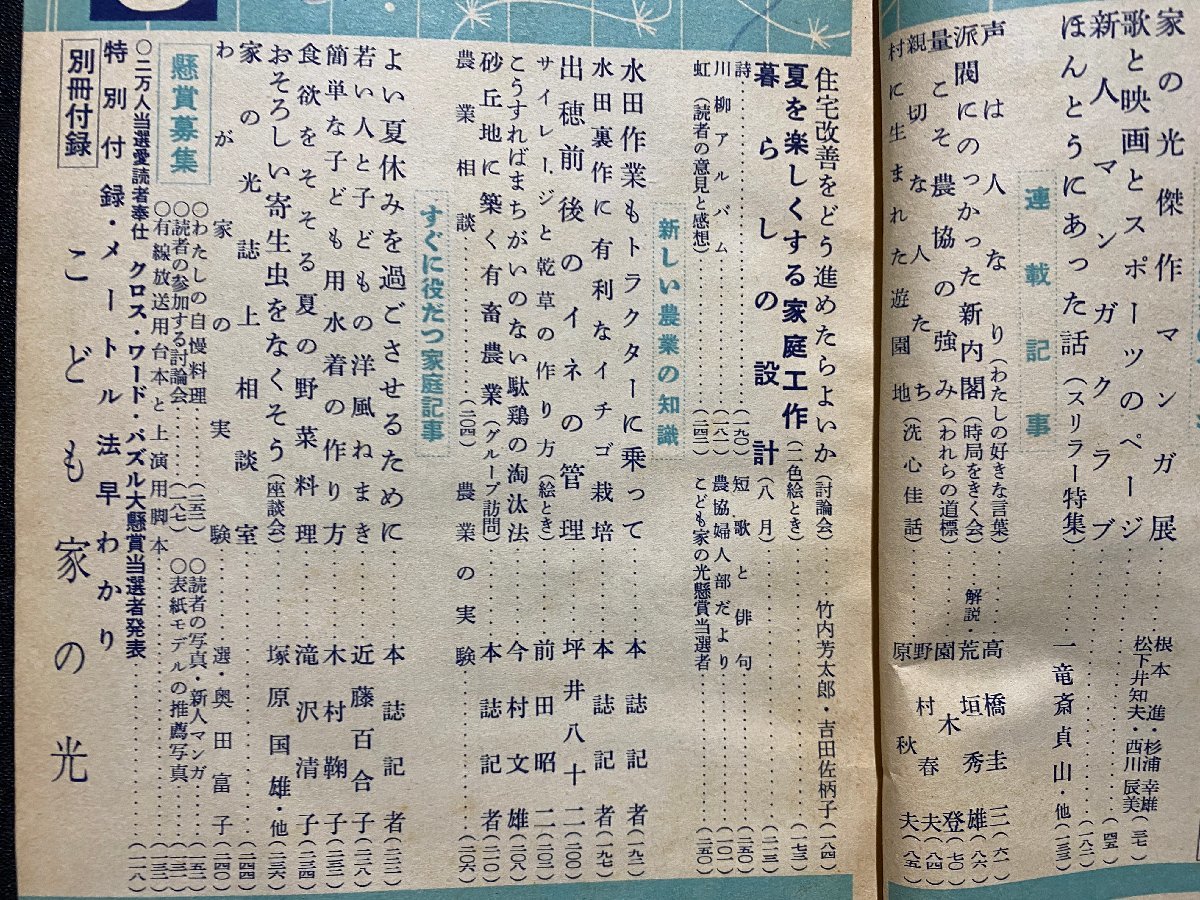 家の光傑作マンガ展……根本進・杉浦幸雄 松下井知夫・西川辰美(三七)
歌と映画とスポーツのページ……(四五)
新人マンガクラブ……(一八二)
ほんとうにあった話(スリラー特集)……一竜斎貞山・他(一三三)
連載記事
声は人なり(わたしの好きな言葉)……高橋圭三(六一)
派閥にのっかった新内閣(時局をきく会)……解説・荒垣秀雄(八六)
量こそ農協の強み(われらの道標)……園木登(七〇)
親切な人たち……野村春夫(八四)
村に生まれた遊園地(洗心佳話)……原秋夫(八五)
住宅改善をどう進めたらよいか(討論会)……竹内芳太郎・吉田佐柄子(一八四)
夏を楽しくする家庭工作(二色絵とき)……(一七三)
暮らしの設計(八月)……(二一三)
詩……(一九〇)
短歌と俳句……(二五〇)
川柳アルバム……(一八一)
農協婦人部だより……(一〇一)
虹(読者の意見と感想)……(二四二)
こども家の光懸賞当選者……(二五〇)
新しい農業の知識
水田作業もトラクターに乗って……本誌記者(一九二)
水田裏作に有利なイチゴ栽培……本誌記者(一九七)
出穂前後のイネの管理……坪井八十二(二〇〇)
サイレージと乾草の作り方(絵とき)……前田昭二(二〇二)
こうすればまちがいのない駄鶏の淘汰法……今村文雄(二〇八)
砂丘地に築く有畜農業(グループ訪問)……本誌記者(二一〇)
農業相談……(二〇四)
農業の実験……(二〇六)
すぐに役だつ家庭記事
よい夏休みを過ごさせるために……本誌記者(二二二)
若い人と子どもの洋風ねまき……近藤百合子(二二八)
簡単な子ども用水着の作り方……木村鞠子(二三二)
食欲をそそる夏の野菜料理……滝沢清子(二三四)
おそろしい寄生虫をなくそう(座談会)……塚原国雄・他(二三六)
家の光誌上相談室……(二四四)
わが家の実験……選・奥田富子(二四〇)
懸賞募集
○わたしの自慢料理……(二五二)
○読者の写真・新人マンガ……(一五二)
○読者の参加する討論会……(一八七)
○表紙モデルの推薦写真……(一三一)
○有線放送用台本と上演用脚本……(一三二)
○二万人当選愛読者奉仕 クロス・ワード・パズル大懸賞当選者発表……(一一八)
特別付録・メートル法早わかり
別冊付録
こども家の光